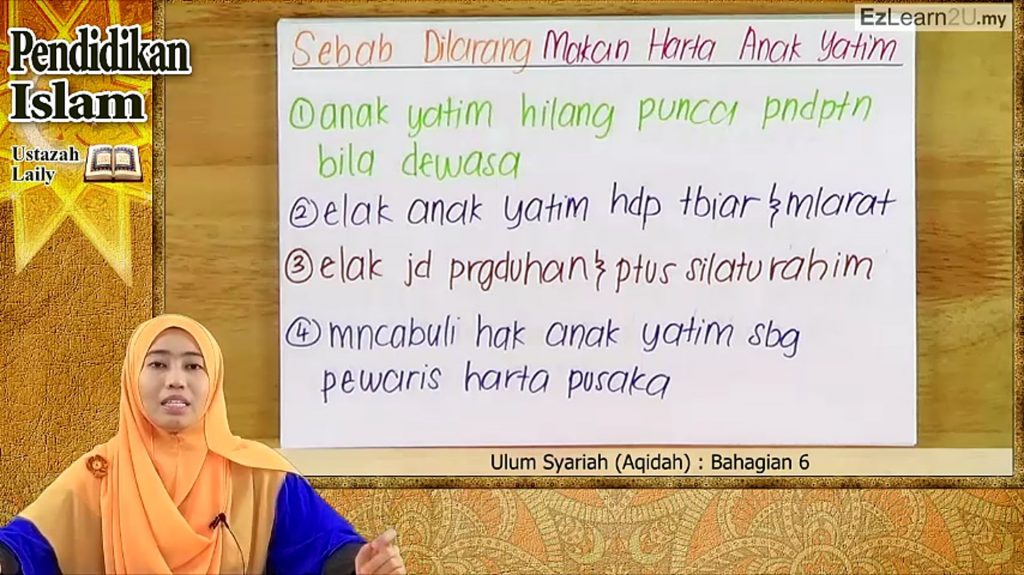 EzLearn2U.my
Pendidikan
Islam
Ustazah
Laily
Sebab Dilarang Makan Harta Anak Yatim
① anak yatim hilang punca pndptn
bila dewasa
② elak anak yatim hdp tbiar & mlarat
③ elak jd prgduhan & ptus silaturahim
④ mncabuli hak anak yatim sbg
pewaris harta pusaka
Ulum Syariah (Aqidah) : Bahagian 6